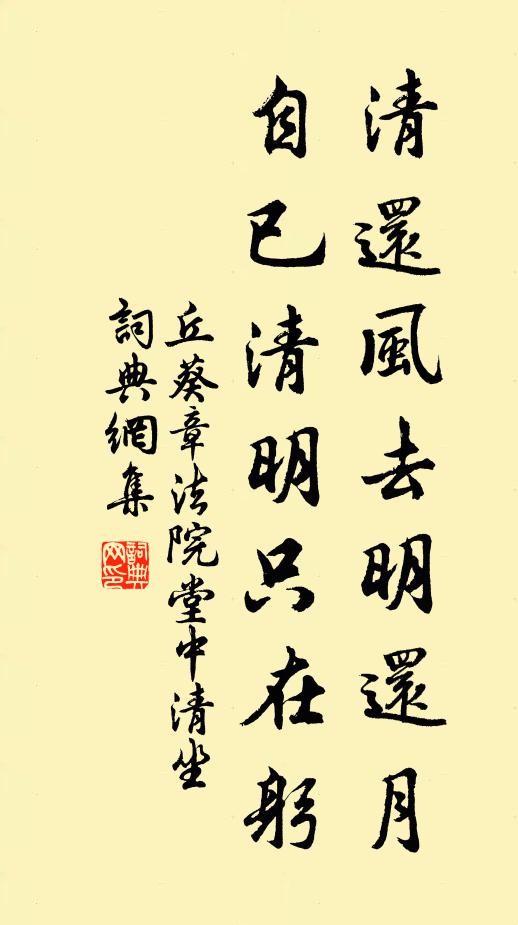 清還風去明還月
自已清明只在躬
丘葵章法院堂中清坐
詞典網集
詞典
网印